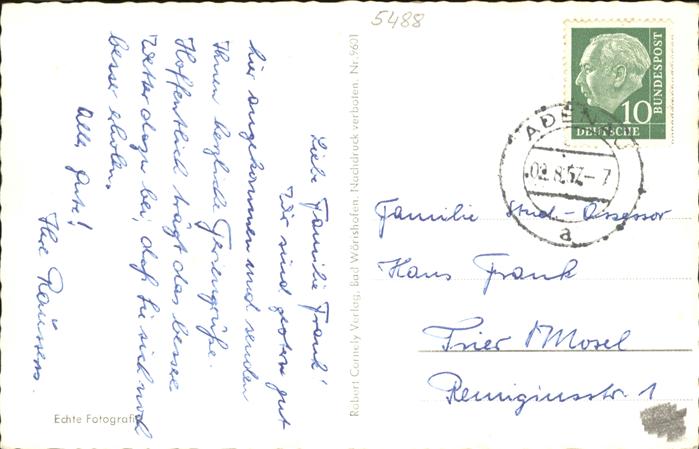 5488
Liebe Familie Frank!
Wir sind gestern gut
hier angekommen und senden
Ihnen herzliche Feriengrüße.
Hoffentlich trägt das bessere
Wetter dazu bei, daß Sie sich noch
besser erholen.
Alles Gute!
Ihre
Robert Cornely Verlag, Bad Wörishofen, Nachdruck verboten. Nr. 9601
Echte Fotografie
10
DEUTSCHE
BUNDESPOST
ADENAU
8.57-7
a
Familie Stud-Assessor
Hans Frank
Trier / Mosel
Remigiusstr. 1